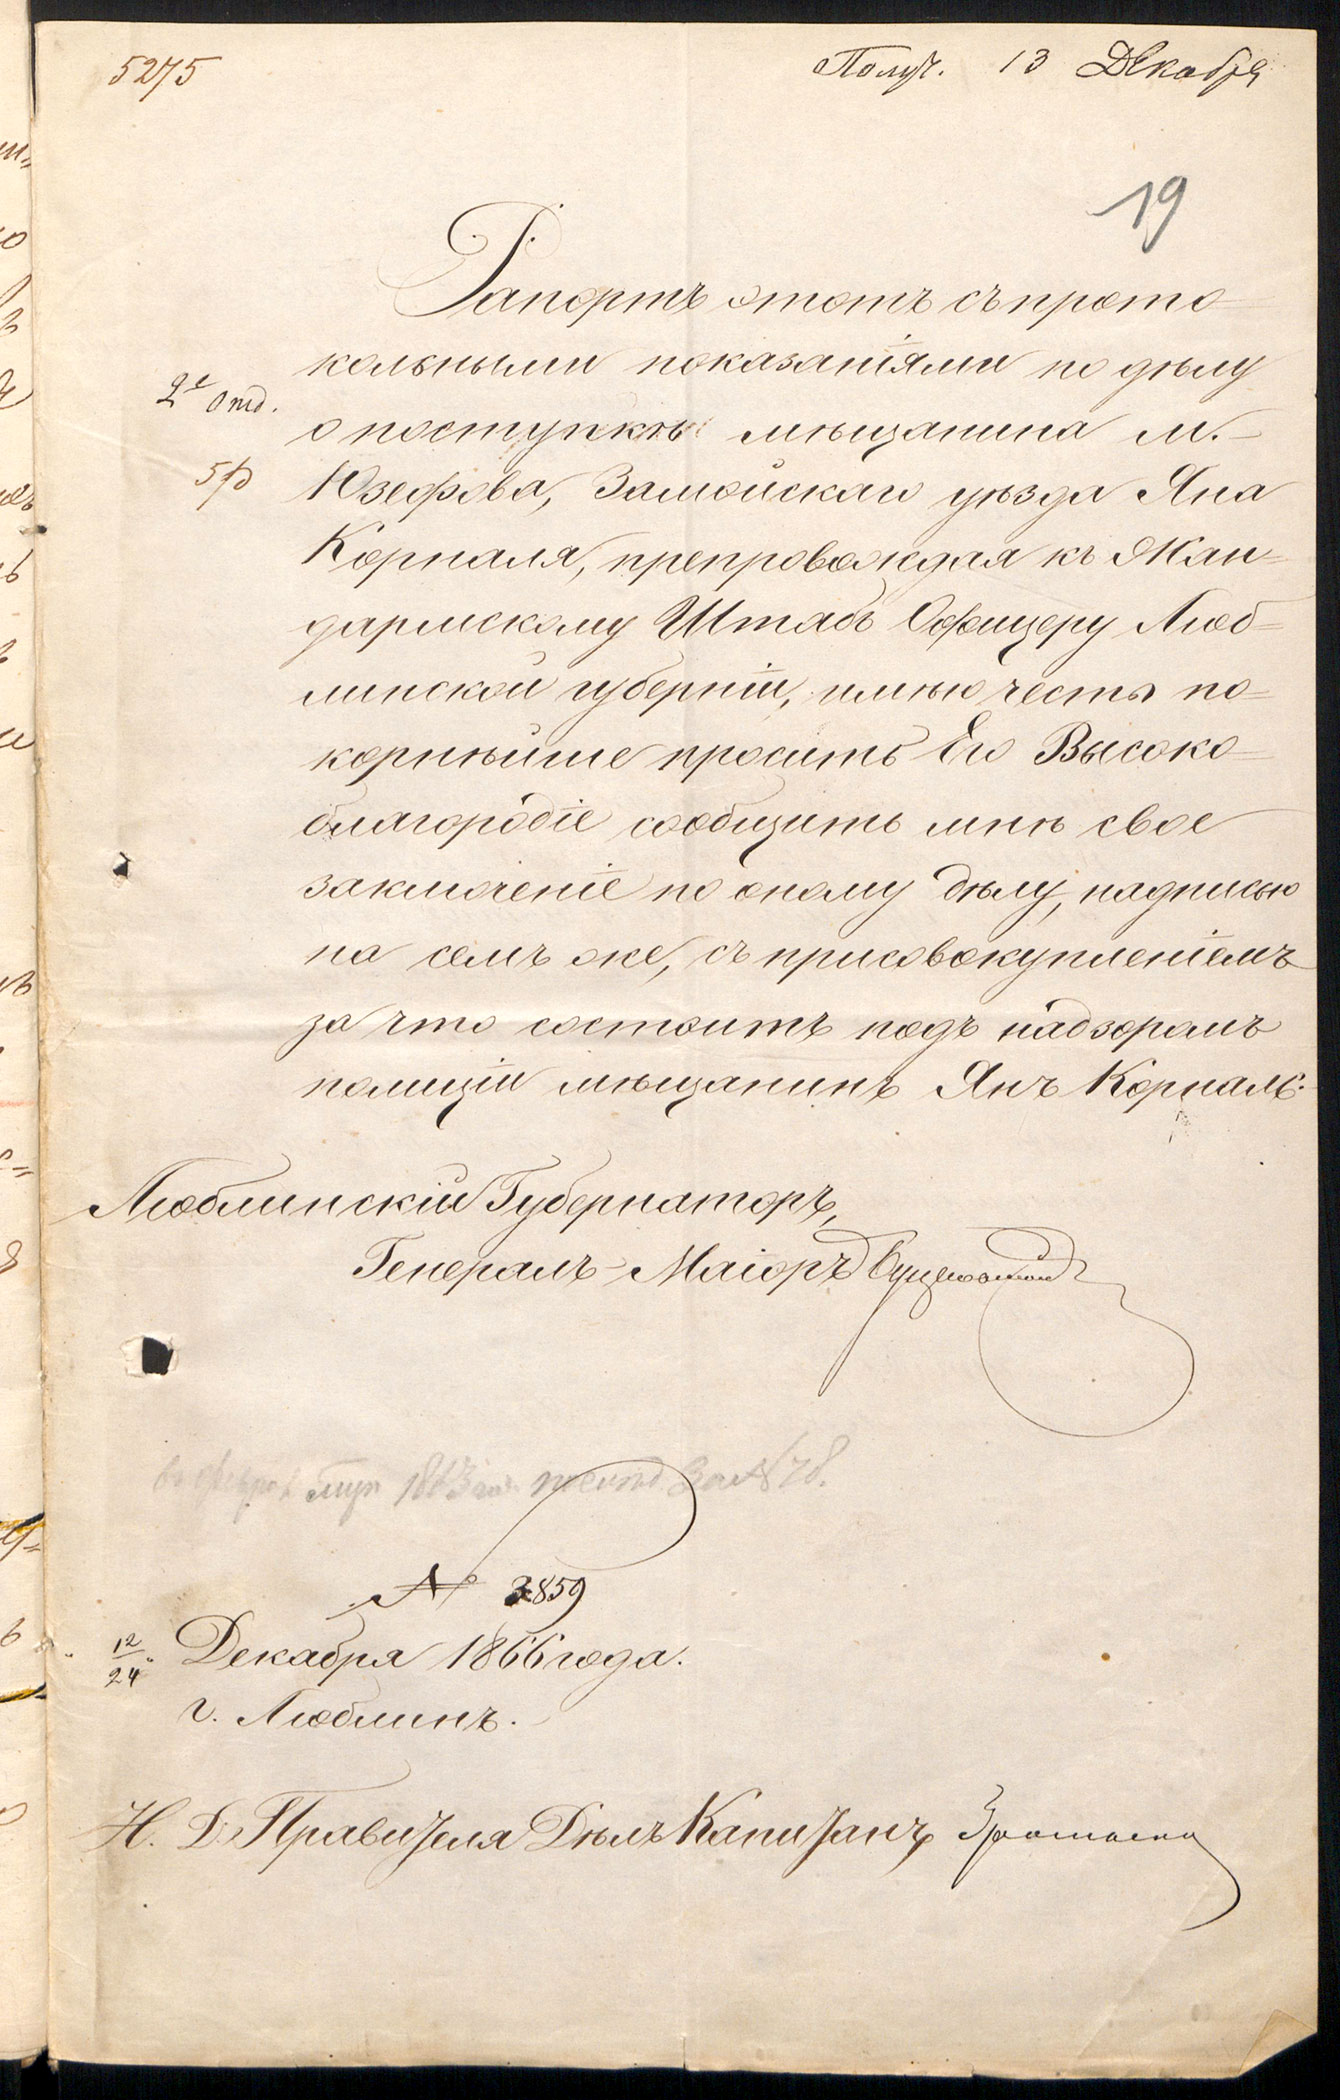 5275
Получ. 13 Декабря
19
Рапортъ этотъ съ прото=
кольными показаніями по дѣлу
2е Отд.
о поступкѣ мѣщанина м.
5/р
Юзефова, Замойскаго уѣзда Яна
Корналя, препровождая къ Жан=
дармскому Штабъ Офицеру Люб=
линской губерніи, имѣю честь по=
корнѣйше просить Его Высоко=
благородіе сообщить мнѣ свое
заключеніе по оному дѣлу, надписью
на семъ же, съ присовокупленіемъ
за что состоитъ подъ надзоромъ
полиціи мѣщанинъ Янъ Корналь.
Люблинскій Губернаторъ,
Генералъ-Маіоръ
1863 за № 78.
№ 3859
12/24 Декабря 1866 года.
г. Люблинъ.
Н. Д. Правителя Дѣлъ Капитанъ